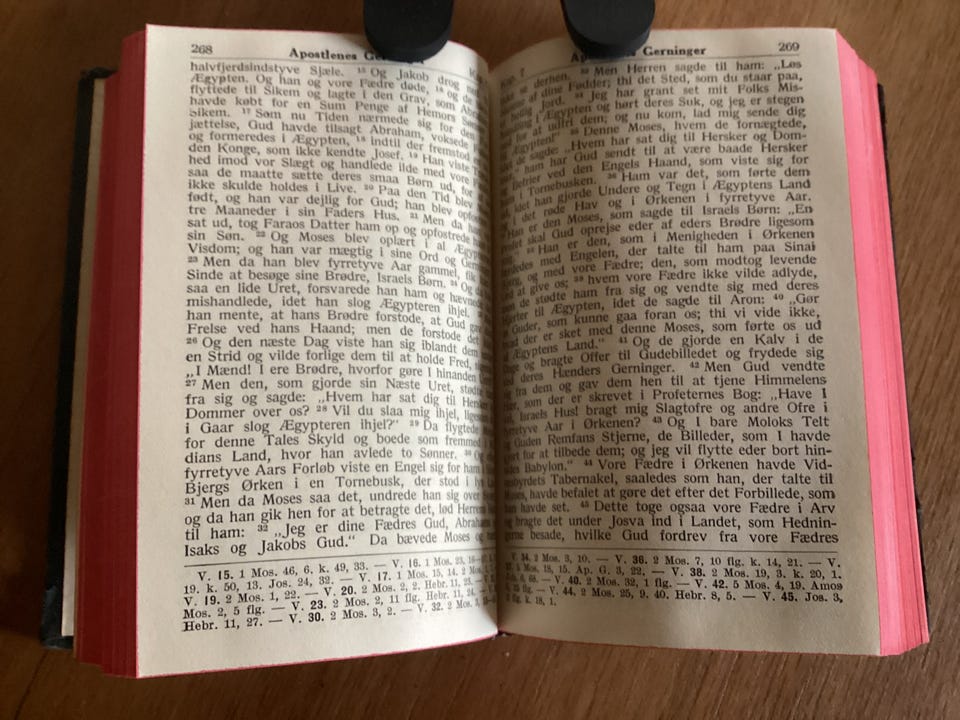 268 Apostlenes
halvfjerdsindstyve Sjæle. ¹⁵ Og Jakob drog
Ægypten. Og han og vore Fædre døde, ¹⁶ og de
flyttede til Sikem og lagte i den Grav, som
havde købt for en Sum Penge af Hemors
Sikem. ¹⁷ Som nu Tiden nærmede sig for den
jættelse, Gud havde tilsagt Abraham, voksede
og formeredes i Ægypten, ¹⁸ indtil der fremstod
den Konge, som ikke kendte Josef. ¹⁹ Han viste
hed imod vor Slægt og handlede ilde med vore
saa de maatte sætte deres smaa Børn ud, for
ikke skulde holdes i Live. ²⁰ Paa den Tid blev
født, og han var dejlig for Gud; han blev
tre Maaneder i sin Faders Hus. ²¹ Men da
sat ud, tog Faraos Datter ham op og opfostrede
sin Søn. ²² Og Moses blev oplært i al
Visdom; og han var mægtig i sine Ord og
²³ Men da han blev fyrretyve Aar gammel,
Sinde at besøge sine Brødre, Israels Børn. ²⁴
saa en lide Uret, forsvarede han ham og
mishandlede, idet han slog Ægypteren ihjel.
han mente, at hans Brødre forstode, at Gud
Frelse ved hans Haand; men de forstode det
²⁶ Og den næste Dag viste han sig iblandt dem
en Strid og vilde forlige dem til at holde Fred,
„I Mænd! I ere Brødre, hvorfor gøre I hinanden
²⁷ Men den, som gjorde sin Næste Uret,
fra sig og sagde: „Hvem har sat dig til
Dommer over os? ²⁸ Vil du slaa mig ihjel,
i Gaar slog Ægypteren ihjel?“ ²⁹ Da flygtede
for denne Tales Skyld og boede som fremmed
dians Land, hvor han avlede to Sønner.
fyrretyve Aars Forløb viste en Engel sig for ham
Bjergs Ørken i en Tornebusk, der stod i
³¹ Men da Moses saa det, undrede han sig over
og da han gik hen for at betragte det, lød
til ham: ³² „Jeg er dine Fædres Gud,
Isaks og Jakobs Gud.“ Da bævede Moses og
V. 15. 1 Mos. 46, 6. k. 49, 33. — V. 16. 1 Mos. 23,
19. k. 50, 13. Jos. 24, 32. — V. 17. 1 Mos. 15, 14. 2 Mos.
V. 19. 2 Mos. 1, 22. — V. 20. 2 Mos. 2, 2. Hebr. 11, 23. —
Mos. 2, 5 flg. — V. 23. 2 Mos. 2, 11 flg. Hebr. 11, 24. —
Hebr. 11, 27. — V. 30. 2 Mos. 3, 2. — V. 32. 2 Mos. 3,
Gerninger 269
derhen. ³³ Men Herren sagde til ham: „Løs
af dine Fødder; thi det Sted, som du staar paa,
hellig Jord. ³⁴ Jeg har grant set mit Folks Mis-
i Ægypten og hørt deres Suk, og jeg er stegen
for at udfri dem; og nu kom, lad mig sende dig
Ægypten!“ ³⁵ Denne Moses, hvem de fornægtede,
de sagde: „Hvem har sat dig til Hersker og Dom-
ham har Gud sendt til at være baade Hersker
Befrier ved den Engels Haand, som viste sig for
i Tornebusken. ³⁶ Ham var det, som førte dem
idet han gjorde Undere og Tegn i Ægyptens Land
i det røde Hav og i Ørkenen i fyrretyve Aar.
Han er den Moses, som sagde til Israels Børn: „En
skal Gud oprejse eder af eders Brødre ligesom
Han er den, som i Menigheden i Ørkenen
med Engelen, der talte til ham paa Sinai
og med vore Fædre; den, som modtog levende
at give os; ³⁹ hvem vore Fædre ikke vilde adlyde,
de stødte ham fra sig og vendte sig med deres
til Ægypten, idet de sagde til Aron: ⁴⁰ „Gør
Guder, som kunne gaa foran os; thi vi vide ikke,
der er sket med denne Moses, som førte os ud
Ægyptens Land.“ ⁴¹ Og de gjorde en Kalv i de
og bragte Offer til Gudebilledet og frydede sig
deres Hænders Gerninger. ⁴² Men Gud vendte
fra dem og gav dem hen til at tjene Himmelens
som der er skrevet i Profeternes Bog: „Have I
Israels Hus! bragt mig Slagtofre og andre Ofre i
fyrretyve Aar i Ørkenen? ⁴³ Og I bare Moloks Telt
Guden Remfans Stjerne, de Billeder, som I havde
for at tilbede dem; og jeg vil flytte eder bort hin-
Babylon.“ ⁴⁴ Vore Fædre i Ørkenen havde Vid-
nesbyrdets Tabernakel, saaledes som han, der talte til
Moses, havde befalet at gøre det efter det Forbillede, som
han havde set. ⁴⁵ Dette toge ogsaa vore Fædre i Arv
bragte det under Josva ind i Landet, som Hednin-
besade, hvilke Gud fordrev fra vore Fædres
V. 34. 2 Mos. 3, 10. — V. 36. 2 Mos. 7, 10 flg. k. 14, 21. — V.
18, 15. Ap. G. 3, 22. — V. 38. 2 Mos. 19, 3. k. 20, 1.
— V. 40. 2 Mos. 32, 1 flg. — V. 42. 5 Mos. 4, 19. Amos
flg. — V. 44. 2 Mos. 25, 9. 40. Hebr. 8, 5. — V. 45. Jos. 3,
flg. k. 18, 1.